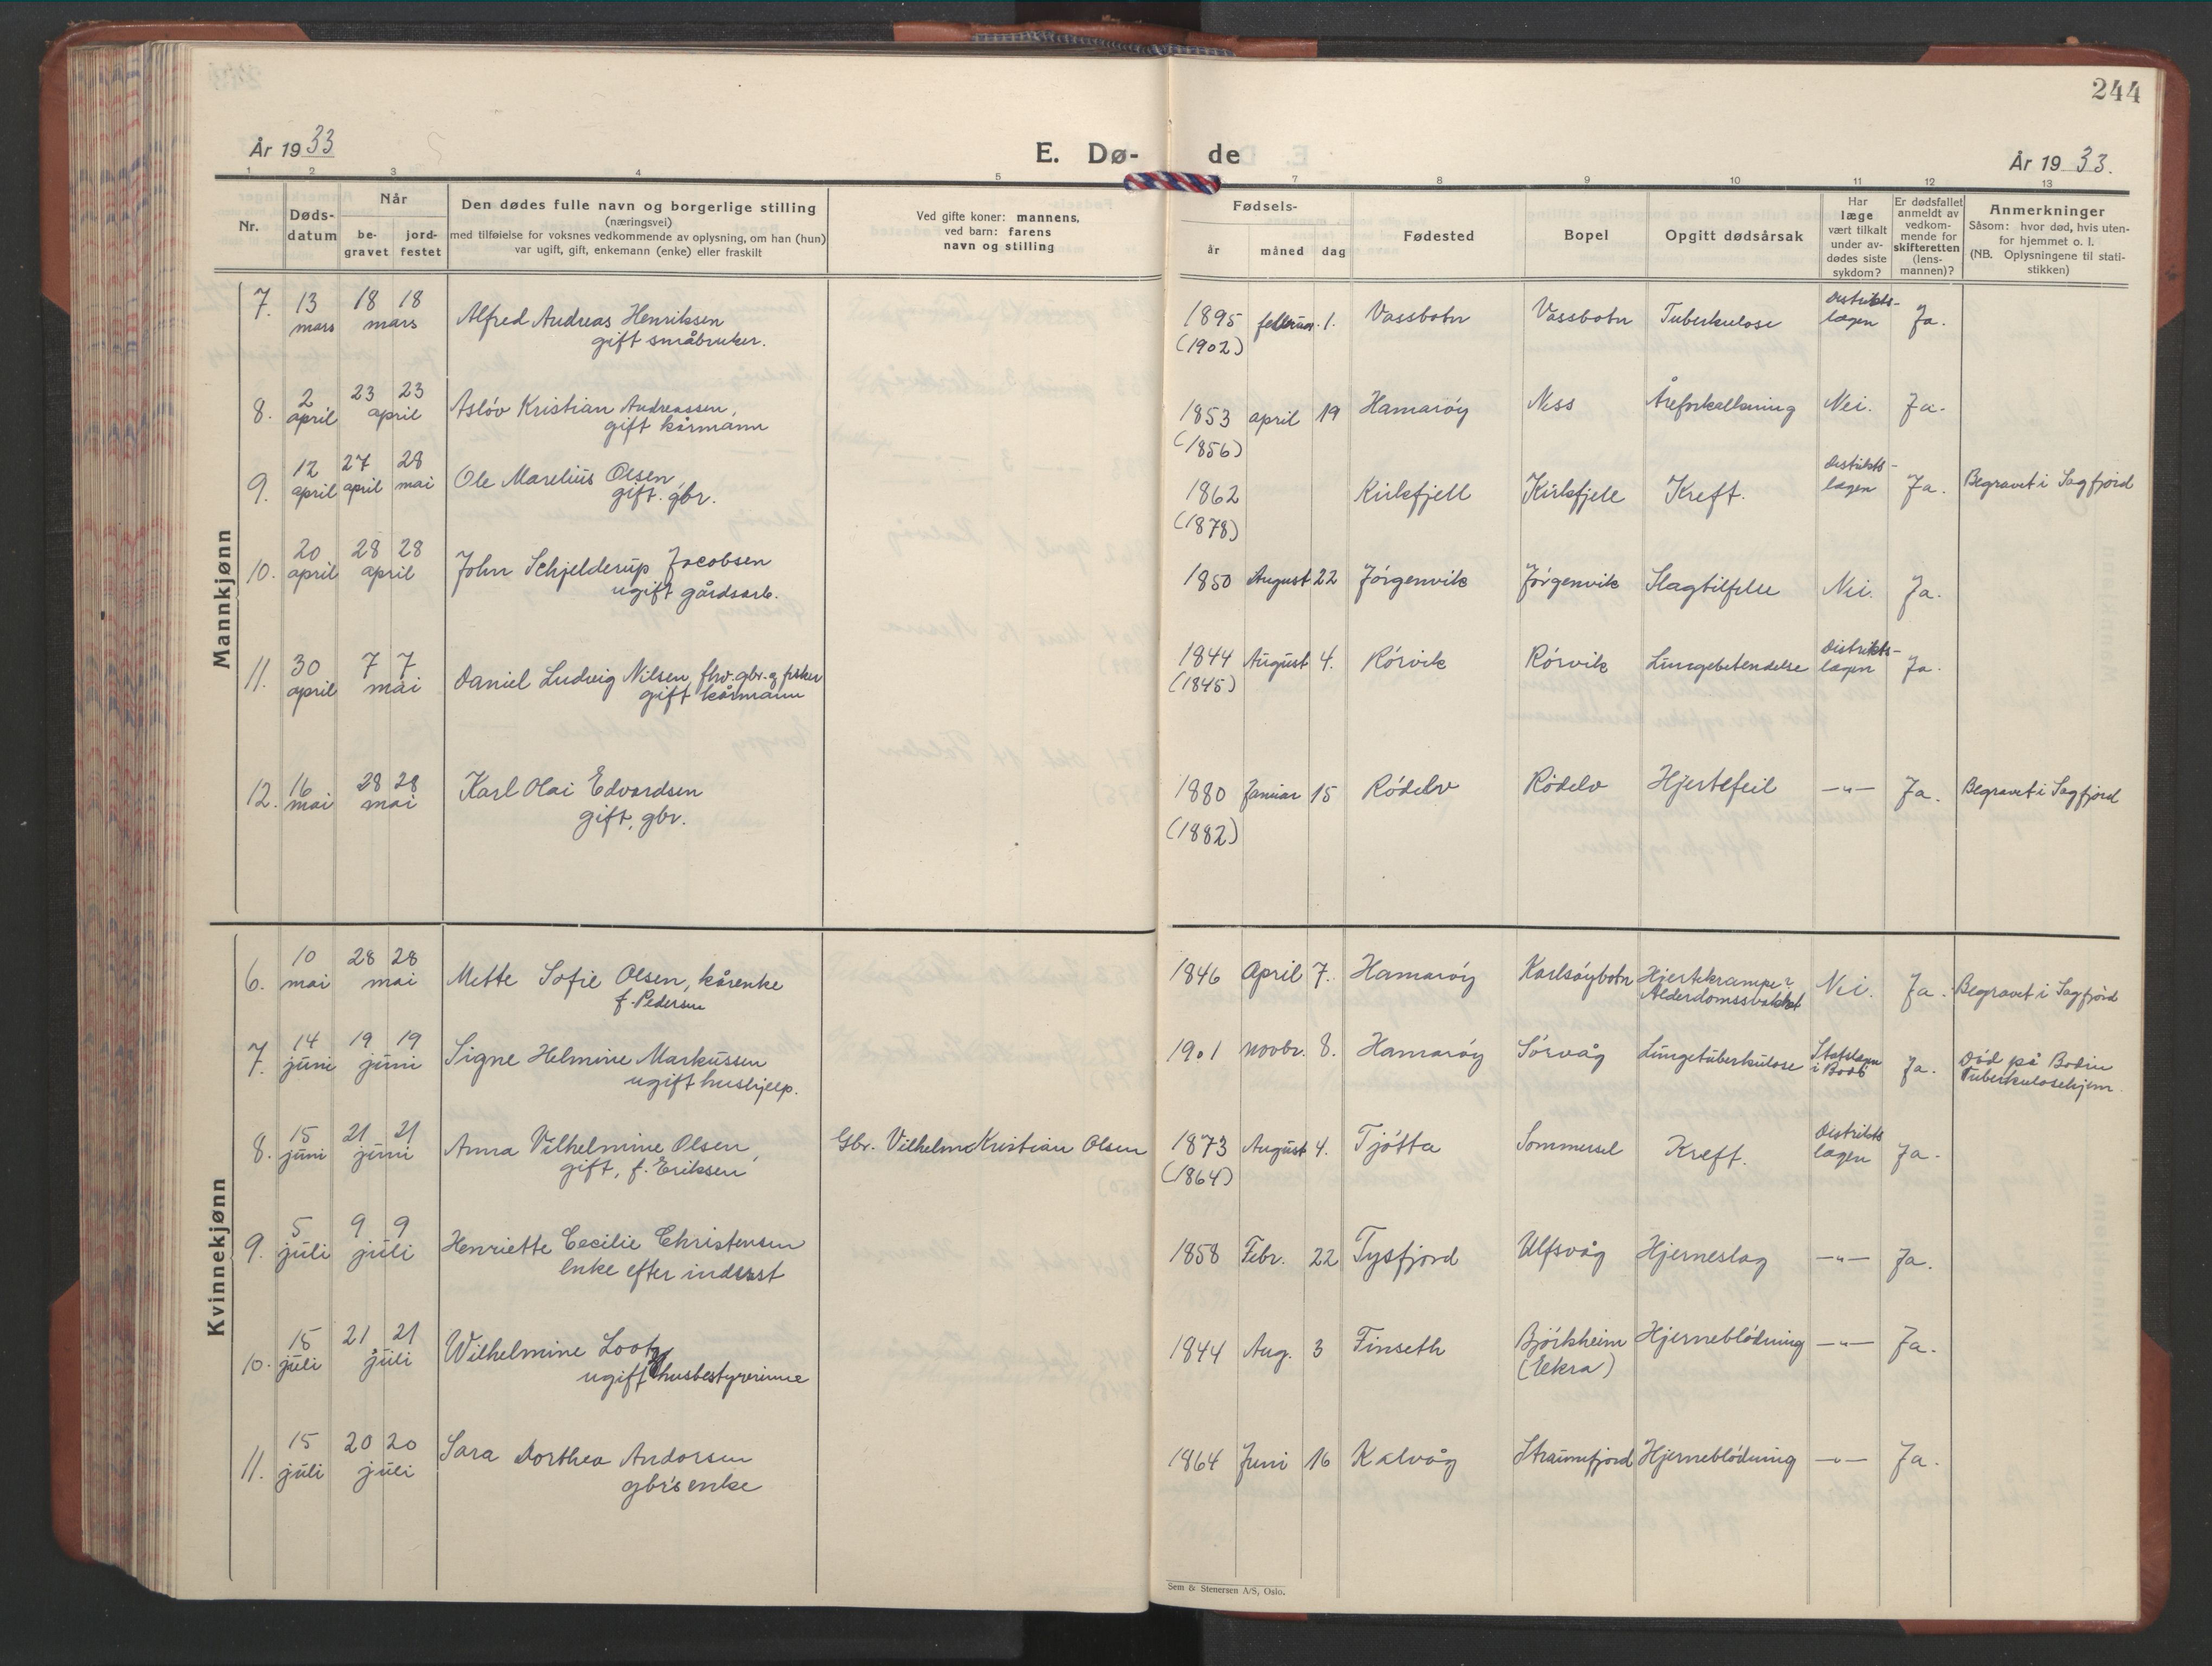 244
År 1933
E. Dø-
de
År 1933.
1 2 3 4 5 7 8 9 10 11 12 13
Nr.
Døds-
datum
Når
be-
gravet
jord-
festet
Den dødes fulle navn og borgerlige stilling
(næringsvei)
med tilføielse for voksnes vedkommende av oplysning, om han (hun)
var ugift, gift, enkemann (enke) eller fraskilt
Ved gifte koner: mannens,
ved barn: farens
navn og stilling
Fødsels-
år måned dag
Fødested
Bopel
Opgitt dødsårsak
Har
læge
vært tilkalt
under av-
dødes siste
sykdom?
Er dødsfallet
anmeldt av
vedkom-
mende for
skifteretten
(lens-
mannen)?
Anmerkninger
Såsom: hvor død, hvis uten-
for hjemmet o. l.
(NB. Oplysningene til stati-
stikken)
Mannkjønn
7. 13 mars 18 18 mars Alfred Andreas Henriksen
gift småbruker.
1895 februar 1. Vassbotn Vassbotn Tuberkulose Distrikts-
lægen Ja.
(1902)
8. 2 april 23 23 april Asløv Kristian Andreassen,
gift kårmann
1853 april 19 Hamarøy Ness Åreforkalkning Nei. Ja.
(1856)
9. 12 april 27 april 28 mai Ole Marelius Olsen,
gift. gbr.
1862 Kirkfjell Kirkfjell Kreft. Distrikts-
lægen Ja. Begravet i Sagfjord
(1878)
10. 20 april 28 28 april John Schjelderup Jacobsen
ugift gårdsarb.
1850 August 22 Jørgenvik Jørgenvik Slagtilfelle Nei. Ja.
11. 30 april 7 7 mai Daniel Ludvig Nilsen, fhv. gbr. og fisker
gift kårmann
1844 August 4. Rørvik Rørvik Lungebetendelse Distrikts-
lægen Ja.
(1845)
12. 16 mai 28 28 mai Karl Olai Edvardsen
gift, gbr.
1880 Januar 15 Rødelv Rødelv Hjertefeil —"— Ja. Begravet i Sagfjord
(1882)
Kvinnekjønn
6. 10 mai 28 28 mai Mette Sofie Olsen, kårenke
f. Pedersen
1846 April 7. Hamarøy Karlsøybotn Hjertekrampe?
Alderdomssvakhet Nei. Ja. Begravet i Sagfjord
7. 14 juni 19 19 juni Signe Helmine Markussen
ugift hushjelp.
1901 novbr. 8. Hamarøy Sørvåg Lungetuberkulose i Bodö Ja. Død på Bodin
Tuberkulosehjem.
8. 15 juni 21 21 juni Anna Vilhelmine Olsen,
gift, f. Eriksen
Gbr. Vilhelm Kristian Olsen
1873 August 4. Tjøtta Sommersel Kreft. Distrikts
lægen Ja.
(1864)
9. 5 juli 9 9 juli Henriette Cecilie Christensen
enke efter inderst
1858 Febr. 22 Tysfjord Ulfsvåg Hjerneslag —"— Ja.
10. 15 juli 21 21 juli Wilhelmine Lootz
ugift husbestyrerinne
1844 Aug. 3 Finseth Bjørkheim Hjerneblødning —"— Ja.
(Elkra)
11. 15 juli 20 20 juli Sara Dorthea Andorsen
gbr's enke
1864 Juni 16 Kalvåg Straumfjord Hjerneblødning —"— Ja.
Sem & Stenersen A/S, Oslo.